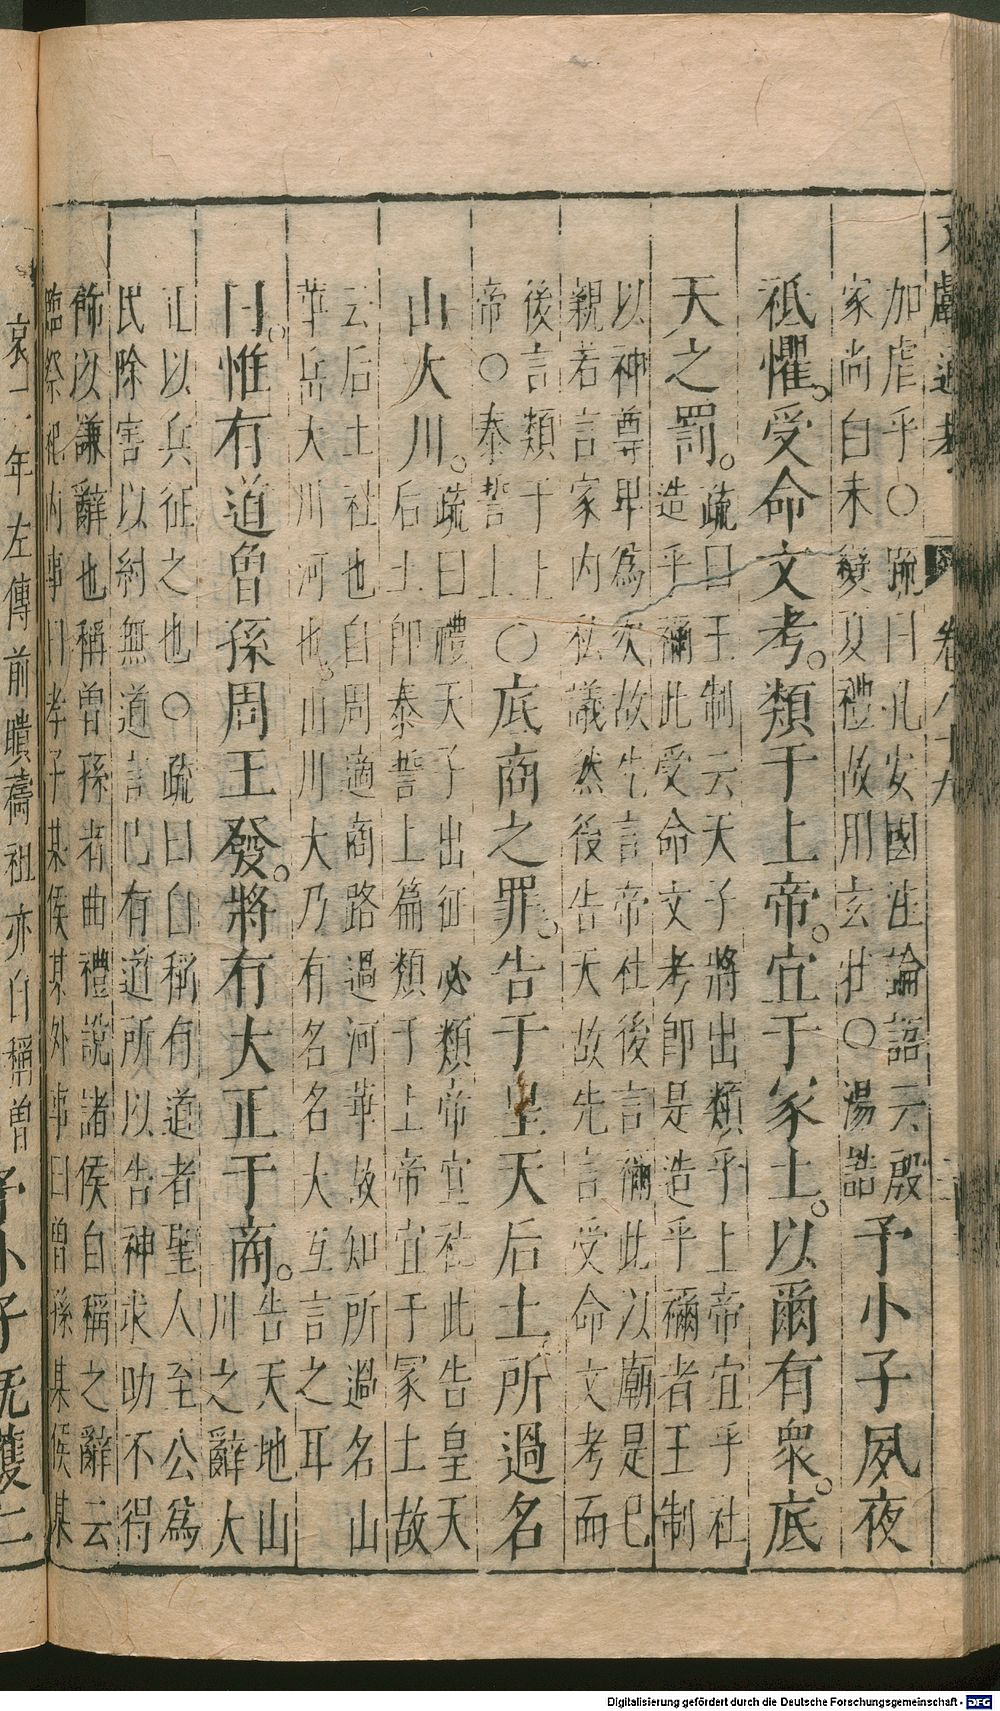 文獻通考 卷八十九
加虐乎○疏曰孔安國注論語云殷
家尚白未變夏禮故用玄牡○湯誥
予小子夙夜
祗懼。受命文考。類于上帝。宜于冢土。以爾有衆。底
天之罰。
疏曰王制云天子將出類乎上帝宜乎社
造乎禰此受命文考即是造乎禰者王制
以神尊卑爲次故先言帝社後言禰此以廟是已
親若言家内私議然後告天故先言受命文考而
後言類于上
帝○泰誓上
○底商之罪。告于皇天后土所過名
山大川。
疏曰禮天子出征必類帝宜社此告皇天
后土即泰誓上篇類于上帝宜于冢土故
云后土社也自周適商路過河華故知所過名山
華岳大川河也。山川大乃有名名大互言之耳
曰。惟有道曾孫周王發。將有大正于商。
告天地山
川之辭大
正以兵征之也○疏曰自稱有道者聖人至公爲
民除害以紂無道言已有道所以告神求助不得
飾以謙辭也稱曾孫者曲禮說諸侯自稱之辭云
臨祭祀内事曰孝子某侯某外事曰曾孫某侯某
哀二年左傳蒯聵禱祖亦自稱曽
予小子既獲仁
Digitalisierung gefördert durch die Deutsche Forschungsgemeinschaft - DFG